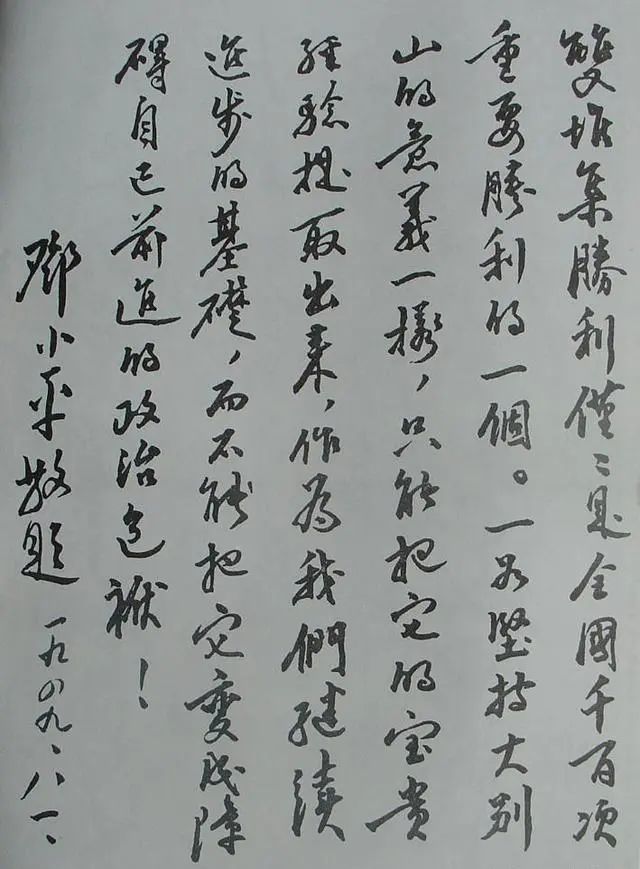 雙堆集勝利僅〻是全國千百項
重要勝利的一個。一如堅持大別
山的意義一樣，只能把它的宝貴
經驗提取出来，作為我們继續
進步的基礎，而不能把它變成障
碍自己前進的政治包袱！
鄧小平敬題 一九四九、八一、